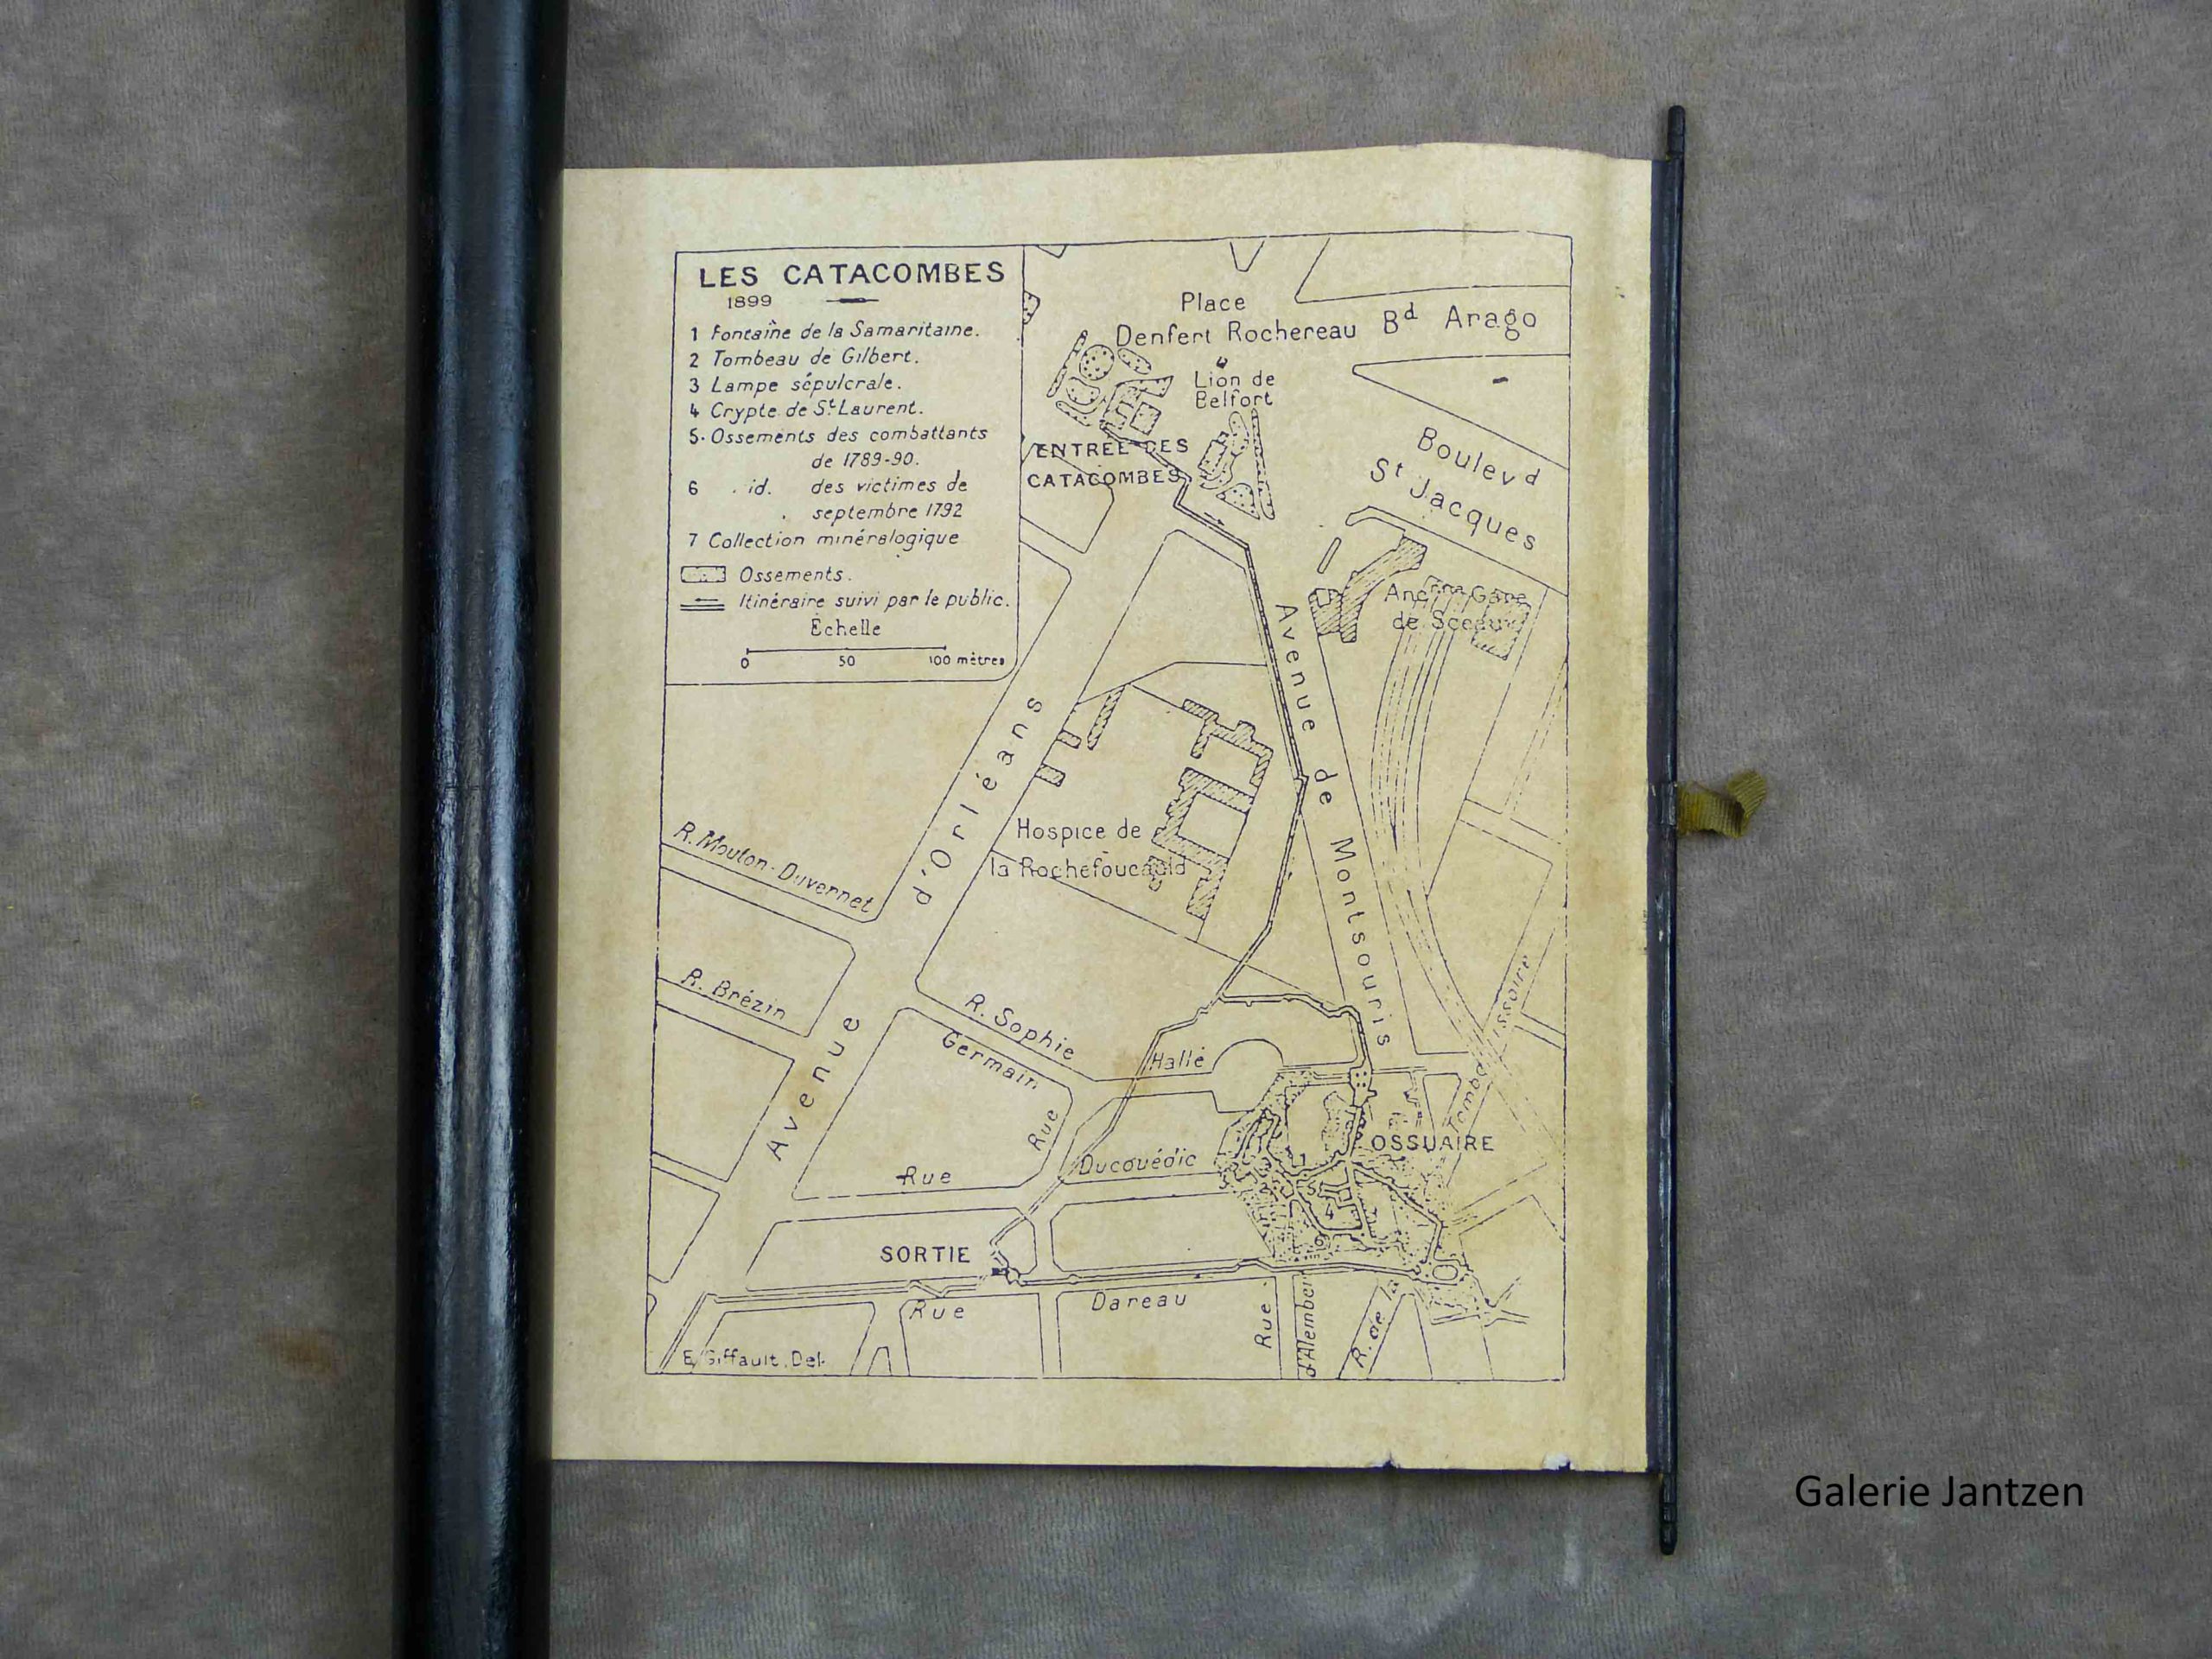 LES CATACOMBES
1899
1 Fontaine de la Samaritaine.
2 Tombeau de Gilbert.
3 Lampe sépulcrale.
4 Crypte de St Laurent.
5. Ossements des combattants
de 1789-90.
6 . id. des victimes de
septembre 1792
7 Collection minéralogique
Ossements.
Itinéraire suivi par le public.
Échelle
0 50 100 mètres
Place
Denfert Rochereau
Bd Arago
Lion de
Belfort
ENTRÉE DES
CATACOMBES
Boulevd
St Jacques
Ancnne Gare
de Sceaux
Avenue de Montsouris
Avenue d'Orléans
Hospice de
la Rochefoucauld
R. Mouton-Duvernet
R. Brézin
R. Sophie
Germain
Hallé
Rue
Rue
Ducouëdic
OSSUAIRE
Tombe Issoire
1
5
4
6
SORTIE
Rue
Dareau
Rue
d'Alembert
R. de la
E. Giffault. Del.
Galerie Jantzen